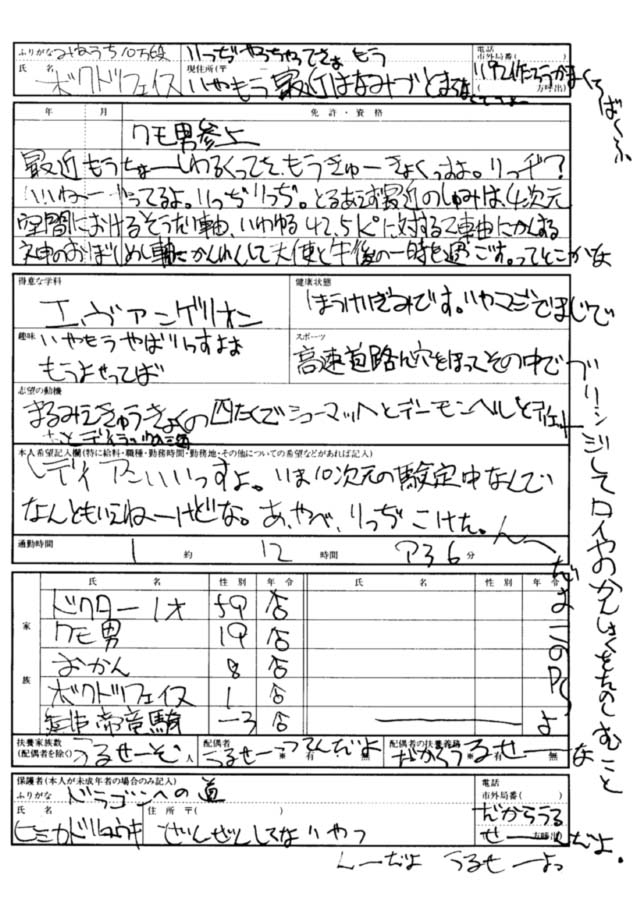 ふりがな みねうち10万段
りっぢやろうちゃってさぁ もう
電話
市外局番( )
氏 名 ボクドフェイス
現住所(〒 いやもう最近はなみづとまらな
( 方呼出)
年 月 免許・資格
クモ男参上
最近もうちょーしわるくってさ、もうきゅーきょくっすよ。りっヂ?
いいねーやってるよ。りっぢりっぢ。とるあえず最近のしゅみは4次元
空間におけるそうたい軸、いわゆる42.5K°に対するZ軸にかんする
ネ申のおぼしめし軸にかんれんして天使と午後の一時を過ごす。ってとこかなぁ
得意な学科
エヴァンゲリオン
健康状態
ほうけいぎみです。いやマジでまじで
趣味 いやもうやばいっすよぉ
もうよせってば
スポーツ
高速道路に穴をほってその中で
ブリッジしてタイヤのかんしょくをたのしむこと
志望の動機
まるみえきゅうきょくの四たくでシューマッハとデーモンヘルとディ
本人希望記入欄(特に給料・職種・勤務時間・勤務地・その他についての希望などがあれば記入)
レディアンいいっすよ。いま10次元の験定中なんでい
なんともいえねーけどな。あ、やべ、りっぢこけた。んーー
だよこのPCよ
通勤時間
1 約 12 時間 ア36 分
氏 名 性別 年令 氏 名 性別 年令
家族
ドクター1才 59 店
クモ男 19 店
おかん 8 店
ボクドフェイス 1 店
帝竜騎 -3 店
扶養家族数
(配偶者を除く) うるせーぞ 人
配偶者 うるせーつってんだよ
※ 有 無
配偶者の扶養義務 だからうるせーな
※ 有 無
保護者(本人が未成年者の場合のみ記入)
ふりがな ドラゴンへの道
電話
市外局番( )
氏 名
住 所(〒 )
だからうる
ヒミカドリュウキ
ぜんぜんしてないやつ
せーんだよ.
方呼出
んーだよ うるせーよっ